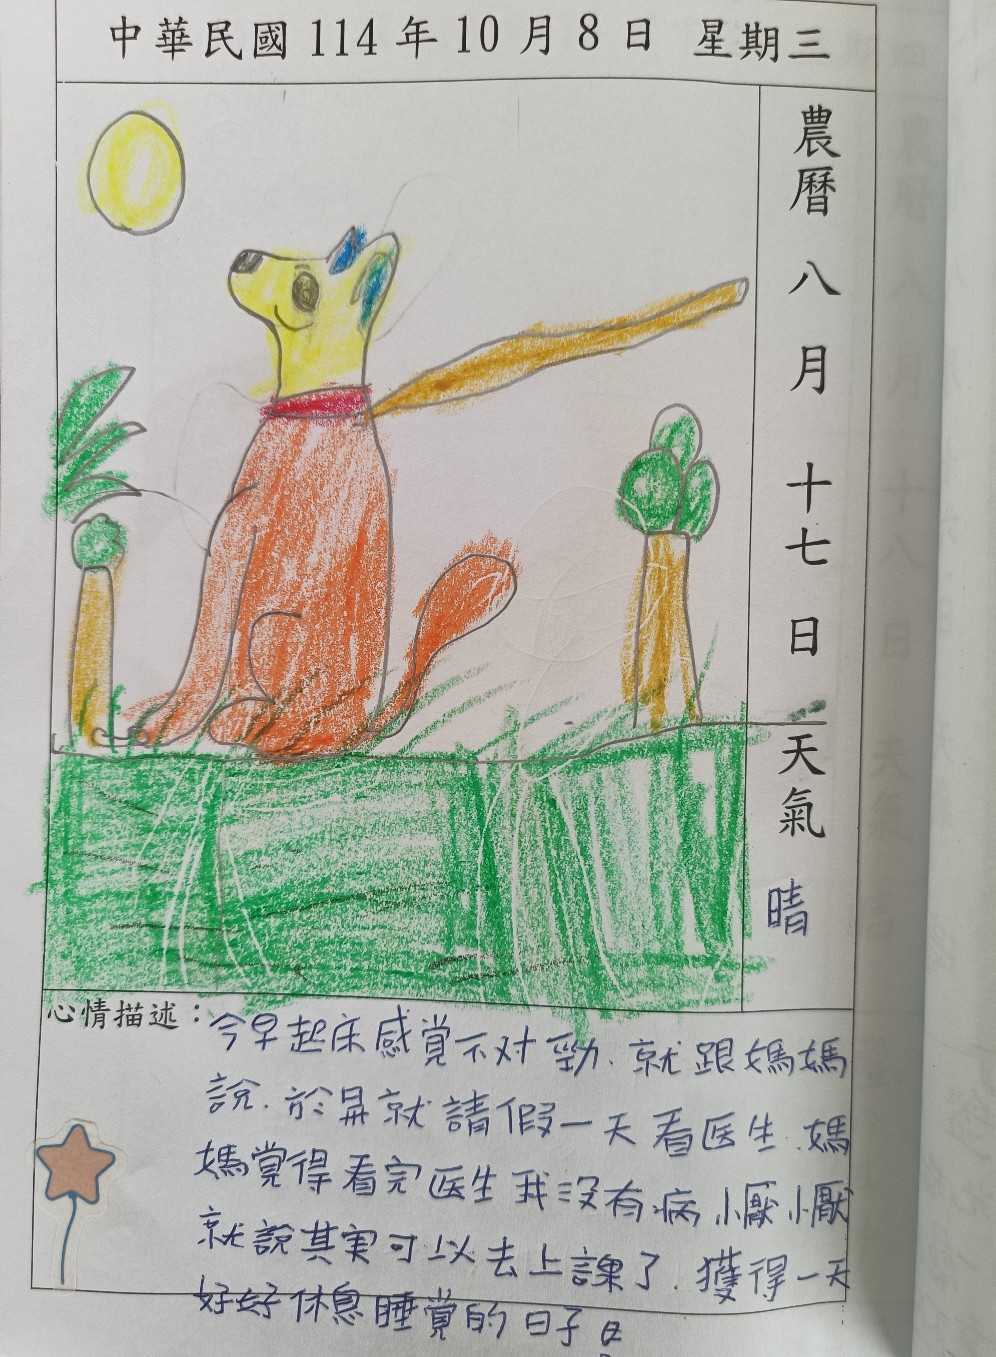 中華民國 114 年 10 月 8 日 星期三
農曆 八月 十七日 天氣 晴
心情描述：
今早起床感覚不对勁.就跟媽媽
說.於昰就請假一天看医生.媽
媽覚得看完医生我沒有病
就說其实可以去上課了.獲得一天
好好休息睡覚的日子